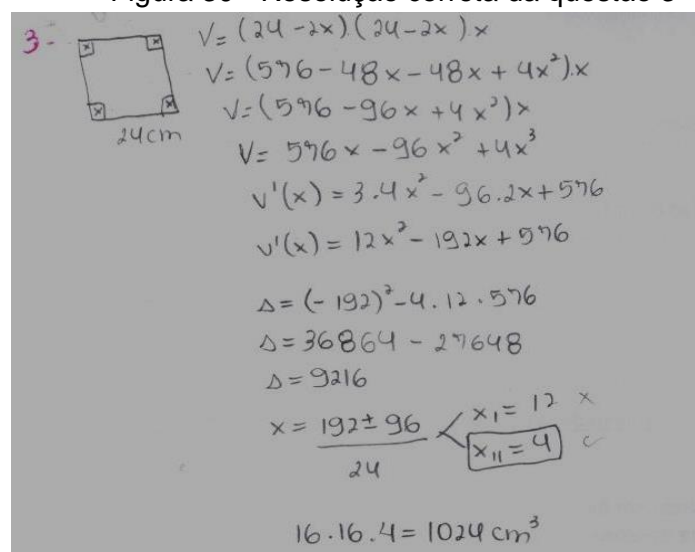 Figura 30 - Resolução correta da questão 3
3-
x x
x x
24cm
V= (24-2x).(24-2x).x
V= (576-48x-48x+4x²).x
V= (576-96x+4x²)x
V= 576x-96x²+4x³
v'(x) = 3.4x²- 96.2x+576
v'(x) = 12x²-192x+576
Δ= (-192)²-4.12.576
Δ= 36864 - 27648
Δ= 9216
x= 192±96
24
x₁= 12 x
x₁₁= 4
16.16.4= 1024 cm³